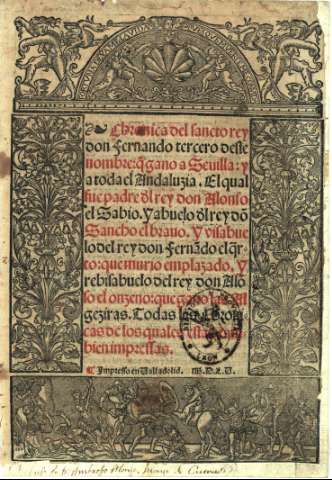 Chronica del sancto rey
don Fernando tercero deste
nombre: q̃ gano a Seuilla: y
a toda el Andaluzia. El qual
fue padre dl̃ rey don Alonso
el Sabio. Y abuelo dl̃ rey dõ
Sancho el brauo. Y visabue
lo del rey don Fernãdo el q̃r
to: que murio emplazado. Y
rebisabuelo del rey don Alõ
so el onzeno: que gano las Al
geziras. Todas las Chroni
cas de los quales estan
bien impressas.
¶ Impresso en Valladolid. M.D.L.V.
LEON